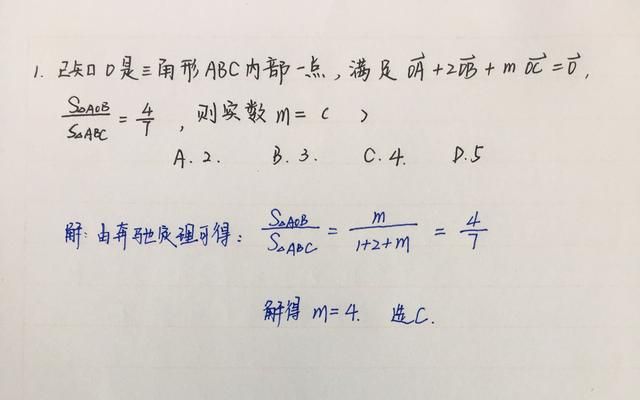 1. 已知O是三角形ABC内部一点，满足 OA⃗ + 2OB⃗ + m OC⃗ = 0⃗，
S△AOB/S△ABC = 4/7，则实数 m = （ ）
A. 2. B. 3. C. 4. D. 5
解：由奔驰定理可得：S△AOB/S△ABC = m/1+2+m = 4/7
解得 m=4. 选C.